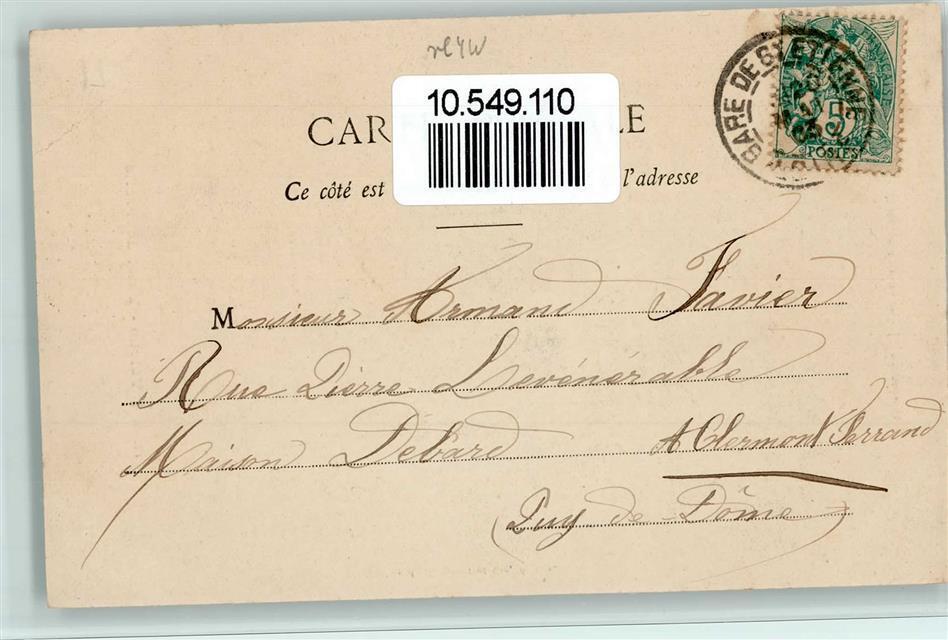 10.549.110
CAR LE
Ce côté est l'adresse
GARE DE ST ETIENNE
5
POSTES
Monsieur Armand Favier
Rue Pierre Levénérable
Maison Débard A Clermont Ferrand
(Puy de Dôme)